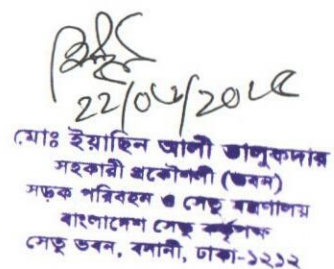 22/০৬/20২৫
মোঃ ইয়াছিন আলী তালুকদার
সহকারী প্রকৌশলী (ভবন)
সড়ক পরিবহন ও সেতু মন্ত্রণালয়
বাংলাদেশ সেতু কর্তৃপক্ষ
সেতু ভবন, বনানী, ঢাকা-১২১২